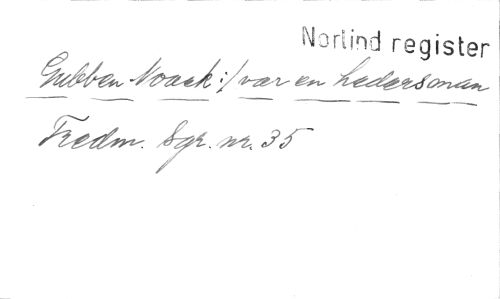 Norlind register
Gubben Noack :/ var en hedersman
Fredm. Sgr. nr. 35